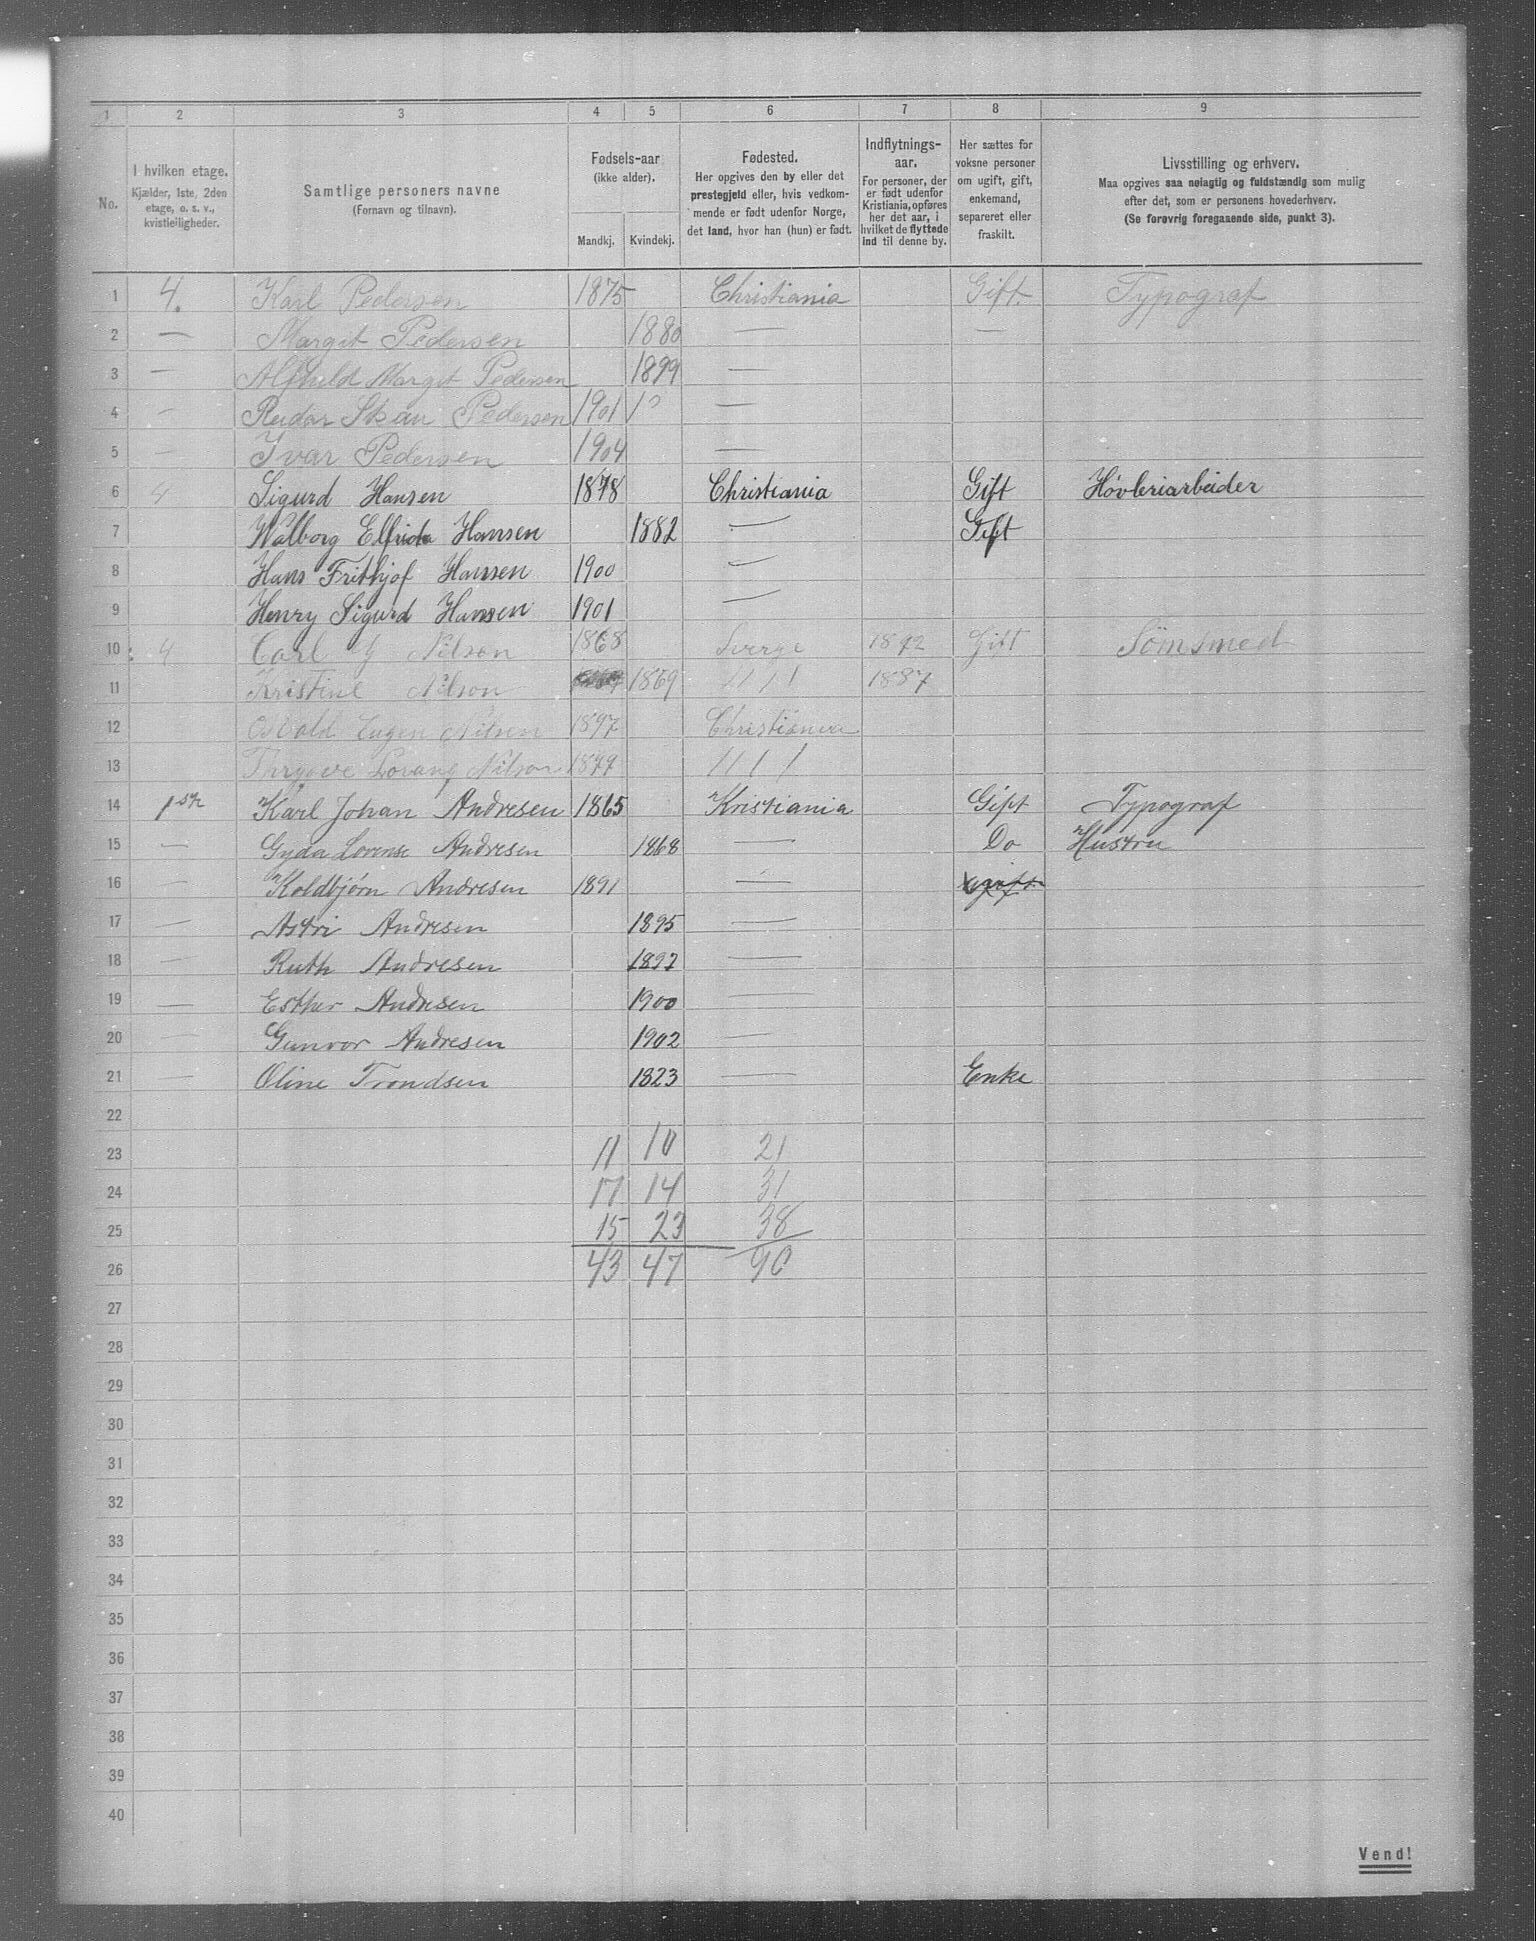 1 2 3 4 5 6 7 8 9
No.
I hvilken etage.
Kjælder, 1ste, 2den
etage, o. s. v.,
kvistleiligheder.
Samtlige personers navne
(Fornavn og tilnavn).
Fødsels-aar
(ikke alder).
Mandkj. Kvindekj.
Fødested.
Her opgives den by eller det
prestegjeld eller, hvis vedkom-
mende er født udenfor Norge,
det land, hvor han (hun) er født.
Indflytnings-
aar.
For personer, der
er født udenfor
Kristiania, opføres
her det aar, i
hvilket de flyttede
ind til denne by.
Her sættes for
voksne personer
om ugift, gift,
enkemand,
separeret eller
fraskilt.
Livsstilling og erhverv.
Maa opgives saa nøiagtig og fuldstændig som mulig
efter det, som er personens hovederhverv.
(Se forøvrig foregaaende side, punkt 3).
1 4. Karl Pedersen 1875 Christiania Gift. Typograf
2 — Margit Pedersen 1880 — —
3 — Alfhild Margit Pedersen 1899 —
4 - Reidar Pedersen 1901 —
5 - Ivar Pedersen 1904 —
6 4 Sigurd Hansen 1878 Christiania Gift Høvleriarbeider
7 Walborg Elfrida Hansen 1882 — Gift
8 Hans Frithjof Hansen 1900 —
9 Henry Sigurd Hansen 1901 —
10 4 Carl J Nilson 1868 Sverge 1892 Gift Sømsmed
11 Kristine Nilson 1869 〃 〃 1887
12 Osvald Eugen Nilsen 1897 Christiania
13 Thrygve Lorang Nilson 1899 〃 〃
14 1ste Karl Johan Andresen 1865 Kristiania Gift Typograf
15 — Gyda Lovense Andresen 1868 — Do Hustru
16 — Koldbjørn Andresen 1891 — gift
17 — Astri Andresen 1895 —
18 — Ruth Andresen 1897 —
19 — Esther Andresen 1900 —
20 — Gunvor Andresen 1902 —
21 — Oline Trondsen 1823 — Enke
22
23 11 10 21
24 17 14 31
25 15 23 38
26 43 47 90
27
28
29
30
31
32
33
34
35
36
37
38
39
40
Vend!